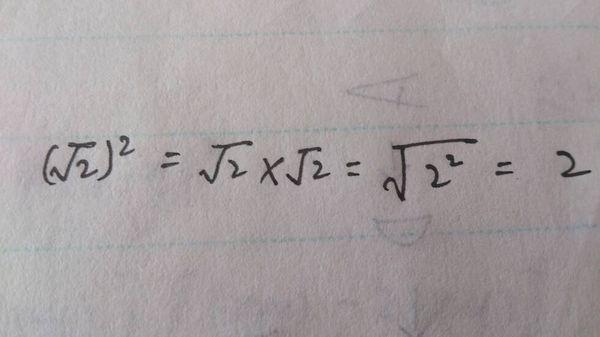 (√2)² = √2 × √2 = √2² = 2